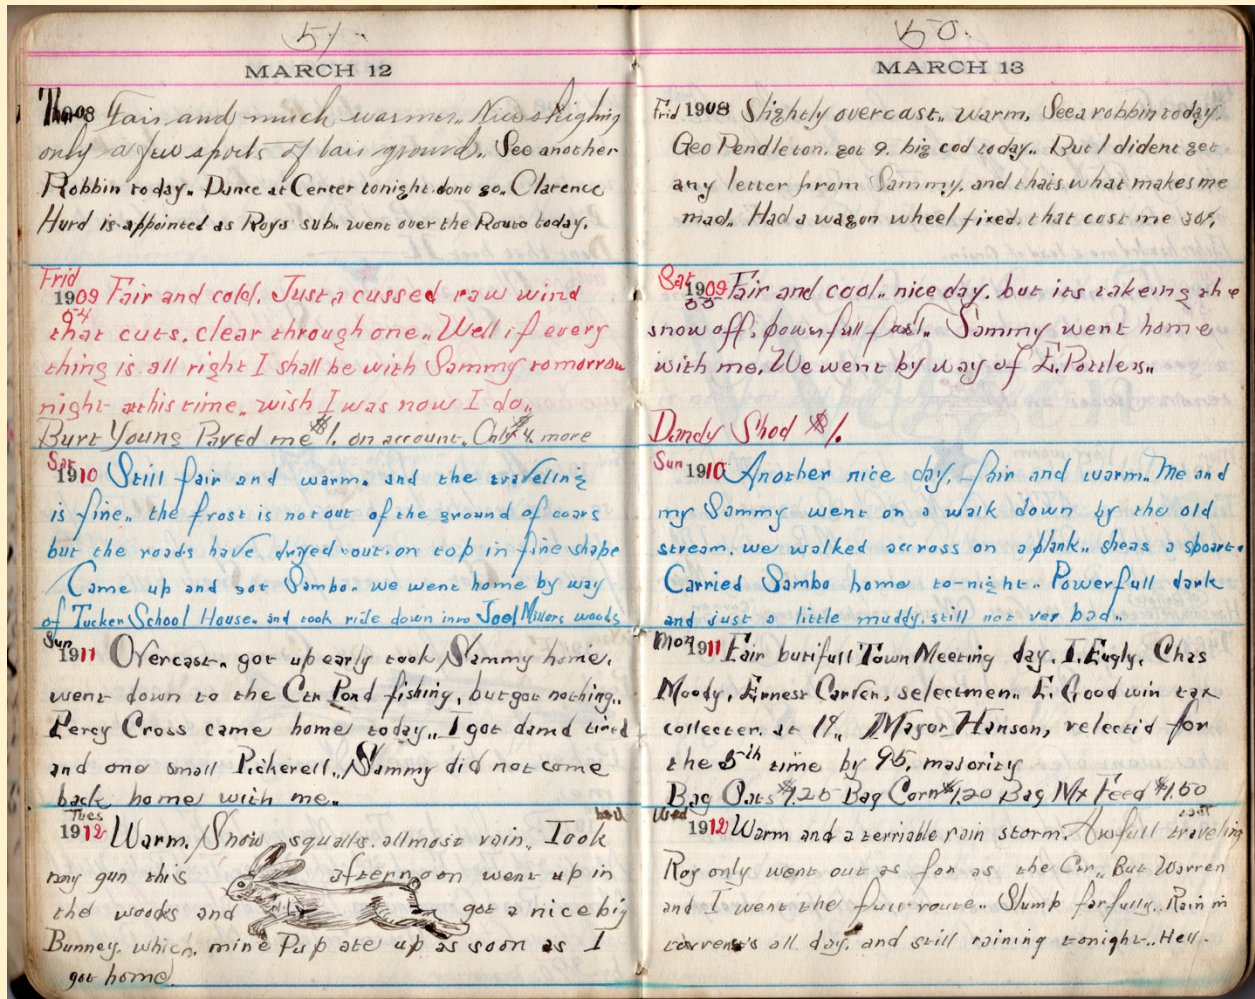 51.
MARCH 12
1908 Fair and much warmer.. Nice sleighing
only a few spoits of bair ground.. See another
Robbin today.. Dance at Center tonight. dont go.. Clarence
Hurd is appointed as Roys sub.. went over the Route today.
Frid
1909 Fair and cold. Just a cussed raw wind
54
that cuts. clear through one.. Well if every
thing is all right I shall be with Sammy tomorrow
night at this time.. wish I was now I do..
Burt Young Payed me $1. on account.. Only $4. more
Sat
1910 Still fair and warm. and the traveling
is fine.. the frost is not out of the ground of coars
but the roads have drayed out on top in fine shape
Came up and got Sambo. we went home by way
of Tucker School House. and took ride down into Joel Millers woods
Sun
1911 Overcast. got up early took Sammy home.
went down to the Ctr Pond fishing, but got nothing..
Percy Cross came home today.. I got damd tired
and one small Pickerell.. Sammy did not come
back home with me..
Tues
1912 Warm. Snow squalls. allmost rain.. Took
my gun this afternoon went up in
the woods and got a nice big
Bunney. which. mine Pup ate up as soon as I
got home.
50.
MARCH 13
Frid 1908 Slightly overcast.. warm. See a robbin today.
Geo Pendleton. got 9. big cod today.. But I dident get
any letter from Sammy. and thats what makes me
mad.. Had a wagon wheel fixed. that cost me 30¢.
Sat
1909 Fair and cool.. nice day. but its takeing the
55
snow off. powerfull fast.. Sammy went home
with me. We went by way of E. Pottlers..
Dandy Shod $1.
Sun
1910 Another nice day. fair and warm.. Me and
my Sammy went on a walk down by the old
stream. we walked accross on a plank.. sheas a spoart.
Carried Sambo home to-night.. Powerfull dark
and just a little muddy. still not ver bad..
Mon
1911 Fair butifull Town Meeting day. I. Eugly. Chas
Moody. Ernest Carver. selectmen.. E. Goodwin tax
collecter. at 1¢.. Mayor Hanson, relectid for
the 5th time by 95. majority
Bag Oats $1.25 Bag Corn $1.20 Bag Mx Feed $1.50
Wed
1912 Warm and a terriable rain storm. Awfull traveling
Roy only went out as far as the Ctr.. But Warren
and I went the full route.. Slump farfully.. Rain in
torrents all day. and still raining tonight.. Hell.